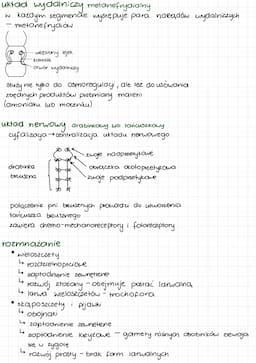 układ wydalniczy metanefrydialny
w każdym segmencie występuje para narządów wydalniczych
- metanefrydiów
wewnętrzny lejek
kanalik
otwór wydalniczy
służy nie tylko do osmoregulacji, ale też do usuwania
zbędnych produktów przemiany materii
(amoniaku lub mocznika)
układ nerwowy drabinkowy lub łańcuszkowy
cyfalizacja → centralizacja układu nerwowego
zwoje nadprzełykowe
drabinka
brzuszna
obrączka okołoprzełykowa
zwoje podprzełykowe
połączenie pni brzusznych prowadzi do utworzenia
łańcuszka brzusznego
zawiera chemo-mechanoreceptory i fotoreceptory
rozmnażanie
• wieloszczety
↳ rozdzielnopłciowe
↳ zapłodnienie zewnętrzne
↳ rozwój złożony - obejmuje postać larwalną
↳ larwa wieloszczetów - trochofora
• skąposzczety i pijawki
↳ obojnaki
↳ zapłodnienie zewnętrzne
↳ zapłodnienie krzyżowe - gamety różnych osobników
się w zygotę
↳ rozwój prosty - brak form larwalnych